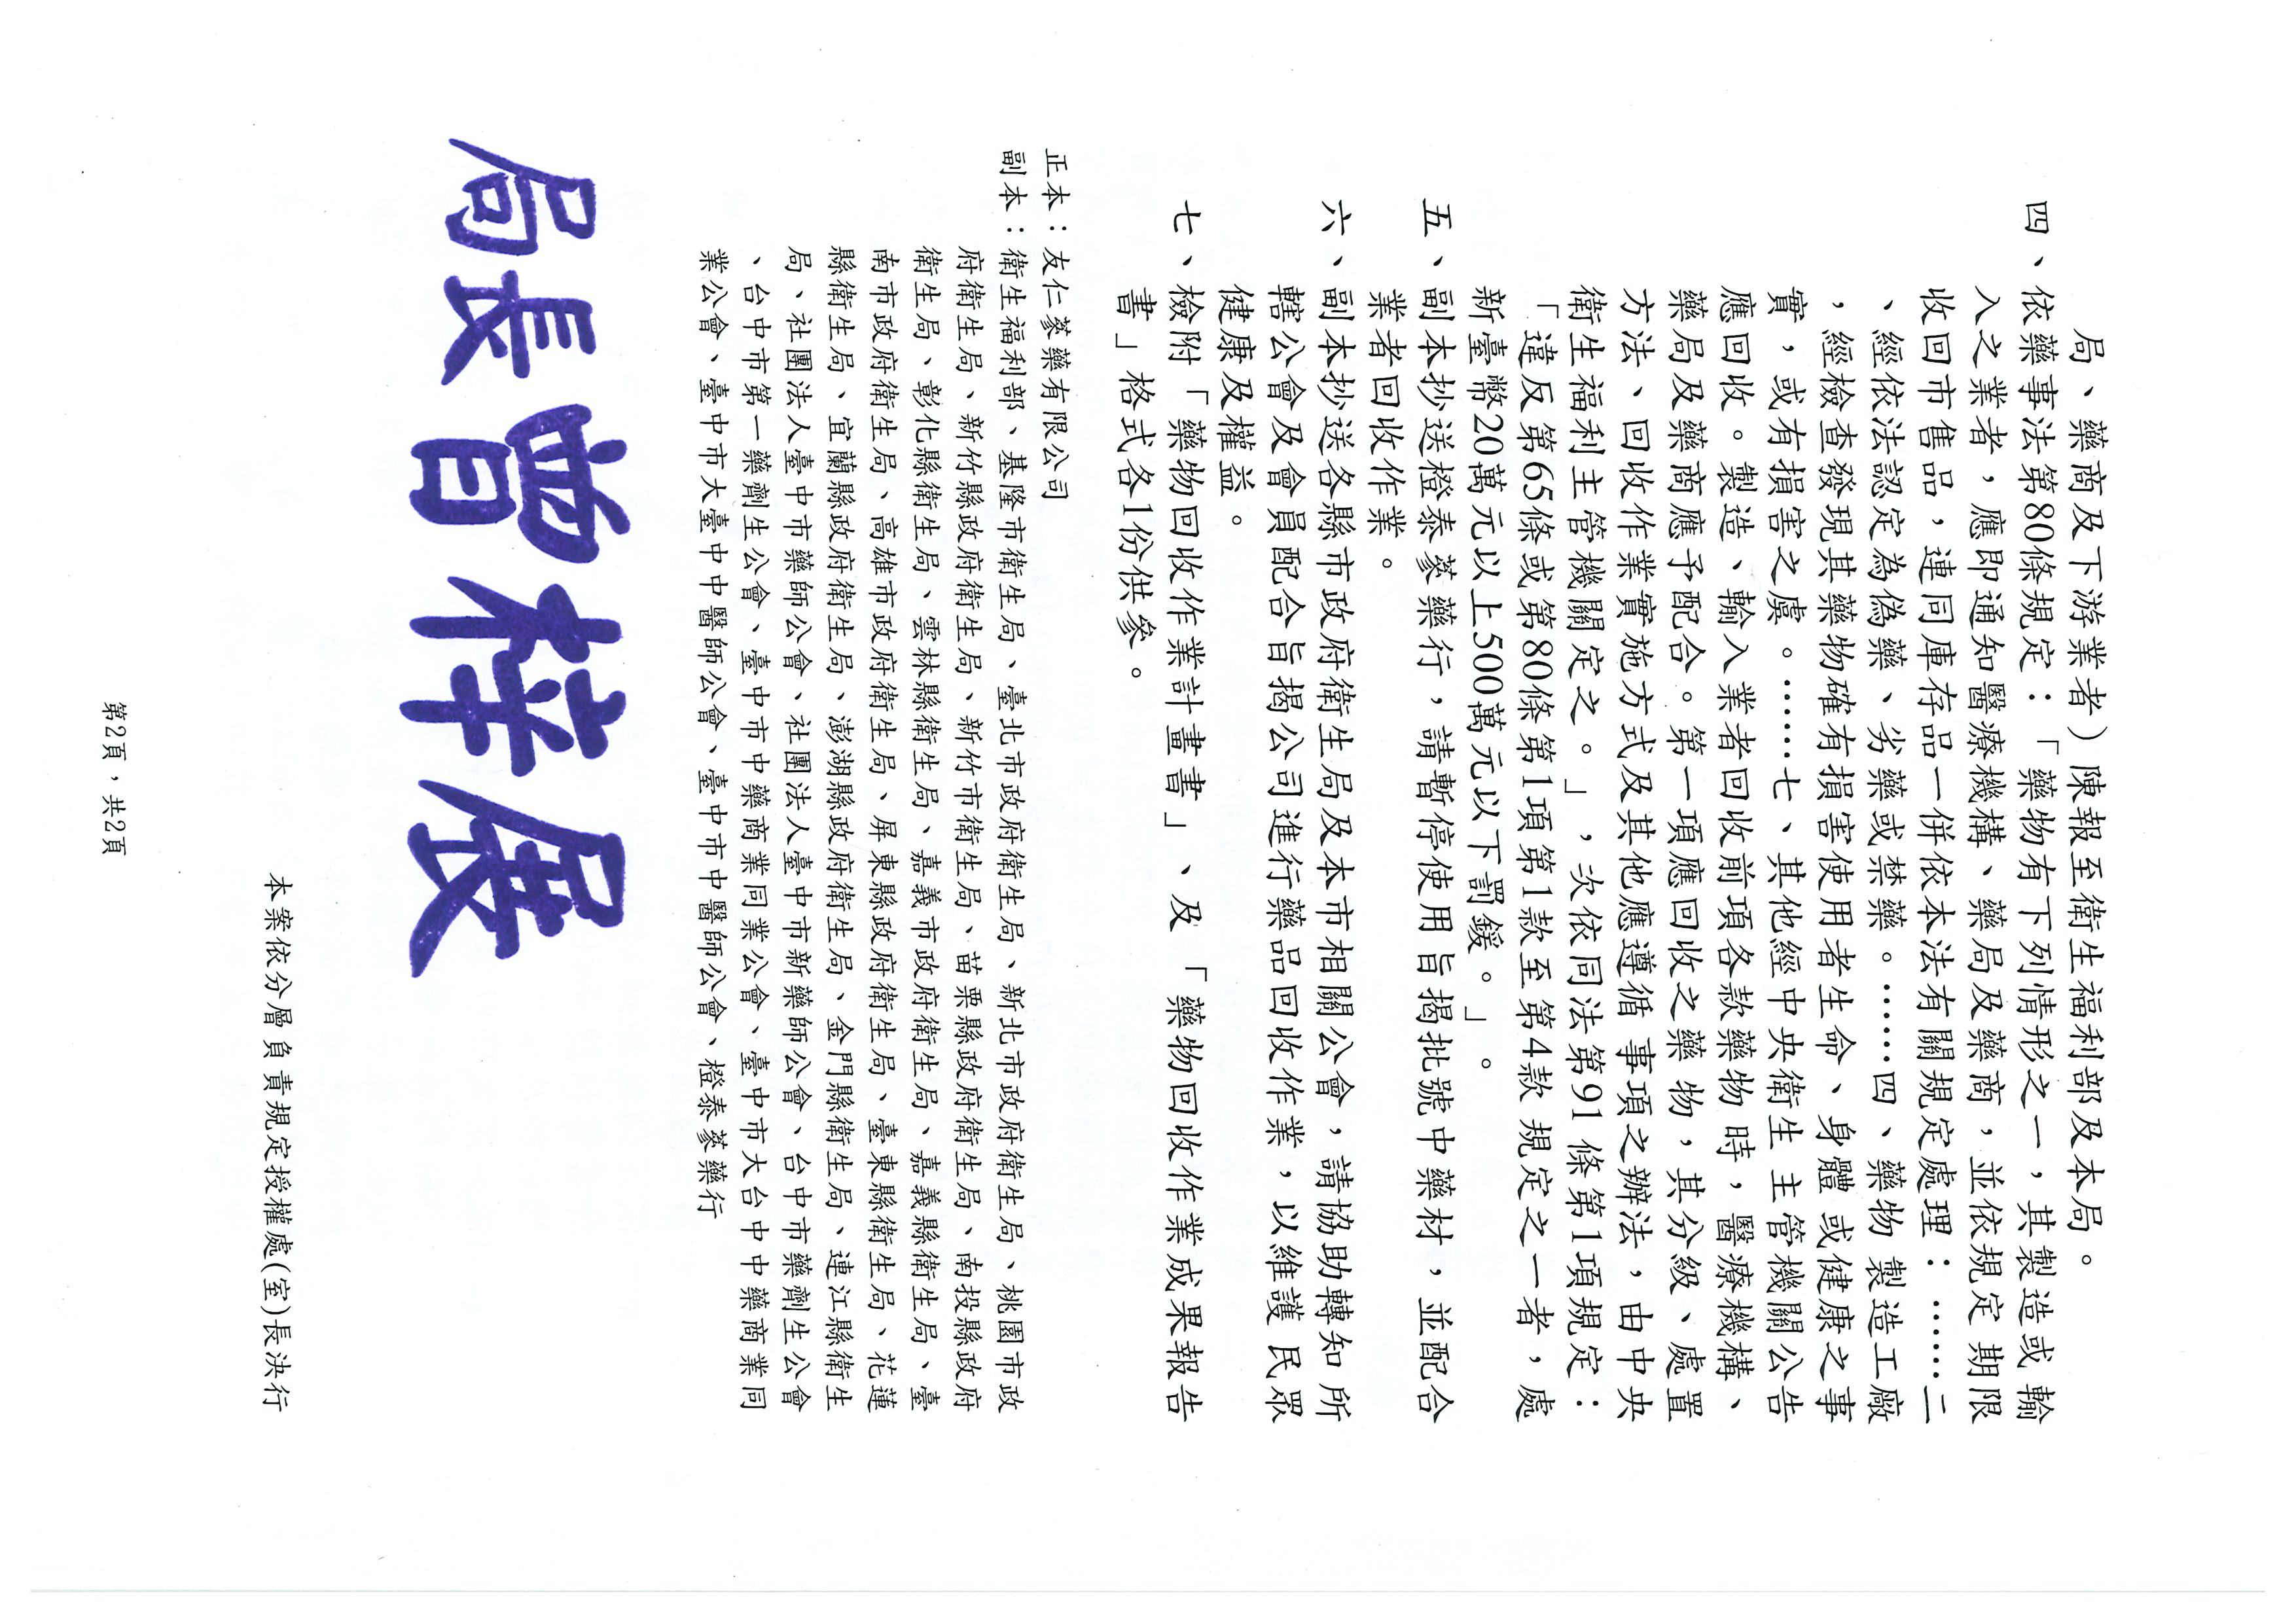 局、藥商及下游業者)陳報至衛生福利部及本局。
四、依藥事法第80條規定：「藥物有下列情形之一，其製造或輸
入之業者，應即通知醫療機構、藥局及藥商，並依規定期限
收回市售品，連同庫存品一併依本法有關規定處理：……二
、經依法認定為偽藥、劣藥或禁藥。……四、藥物製造工廠
，經檢查發現其藥物確有損害使用者生命、身體或健康之事
實，或有損害之虞。……七、其他經中央衛生主管機關公告
應回收。製造、輸入業者回收前項各款藥物時，醫療機構、
藥局及藥商應予配合。第一項應回收之藥物，其分級、處置
方法、回收作業實施方式及其他應遵循事項之辦法，由中央
衛生福利主管機關定之。」，次依同法第91條第1項規定：
「違反第65條或第80條第1項第1款至第4款規定之一者，處
新臺幣20萬元以上500萬元以下罰鍰。」。
五、副本抄送橙泰蔘藥行，請暫停使用旨揭批號中藥材，並配合
業者回收作業。
六、副本抄送各縣市政府衛生局及本市相關公會，請協助轉知所
轄公會及會員配合旨揭公司進行藥品回收作業，以維護民眾
健康及權益。
七、檢附「藥物回收作業計畫書」、及「藥物回收作業成果報告
書」格式各1份供參。
正本：友仁蔘藥有限公司
副本：衛生福利部、基隆市衛生局、臺北市政府衛生局、新北市政府衛生局、桃園市政
府衛生局、新竹縣政府衛生局、新竹市衛生局、苗栗縣政府衛生局、南投縣政府
衛生局、彰化縣衛生局、雲林縣衛生局、嘉義市政府衛生局、嘉義縣衛生局、臺
南市政府衛生局、高雄市政府衛生局、屏東縣政府衛生局、臺東縣衛生局、花蓮
縣衛生局、宜蘭縣政府衛生局、澎湖縣政府衛生局、金門縣衛生局、連江縣衛生
局、社團法人臺中市藥師公會、社團法人臺中市新藥師公會、台中市藥劑生公會
、台中市第一藥劑生公會、臺中市中藥商業同業公會、臺中市大台中中藥商業同
業公會、臺中市大臺中中醫師公會、臺中市中醫師公會、橙泰蔘藥行
局長曾梓展
本案依分層負責規定授權處(室)長決行
第2頁，共2頁